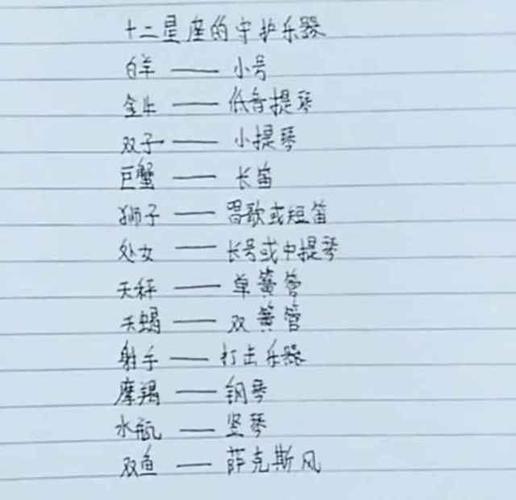 十二星座的守护乐器
白羊 —— 小号
金牛 —— 低音提琴
双子 —— 小提琴
巨蟹 —— 长笛
狮子 —— 唱歌或短笛
处女 —— 长号或中提琴
天秤 —— 单簧管
天蝎 —— 双簧管
射手 —— 打击乐器
摩羯 —— 钢琴
水瓶 —— 竖琴
双鱼 —— 萨克斯风